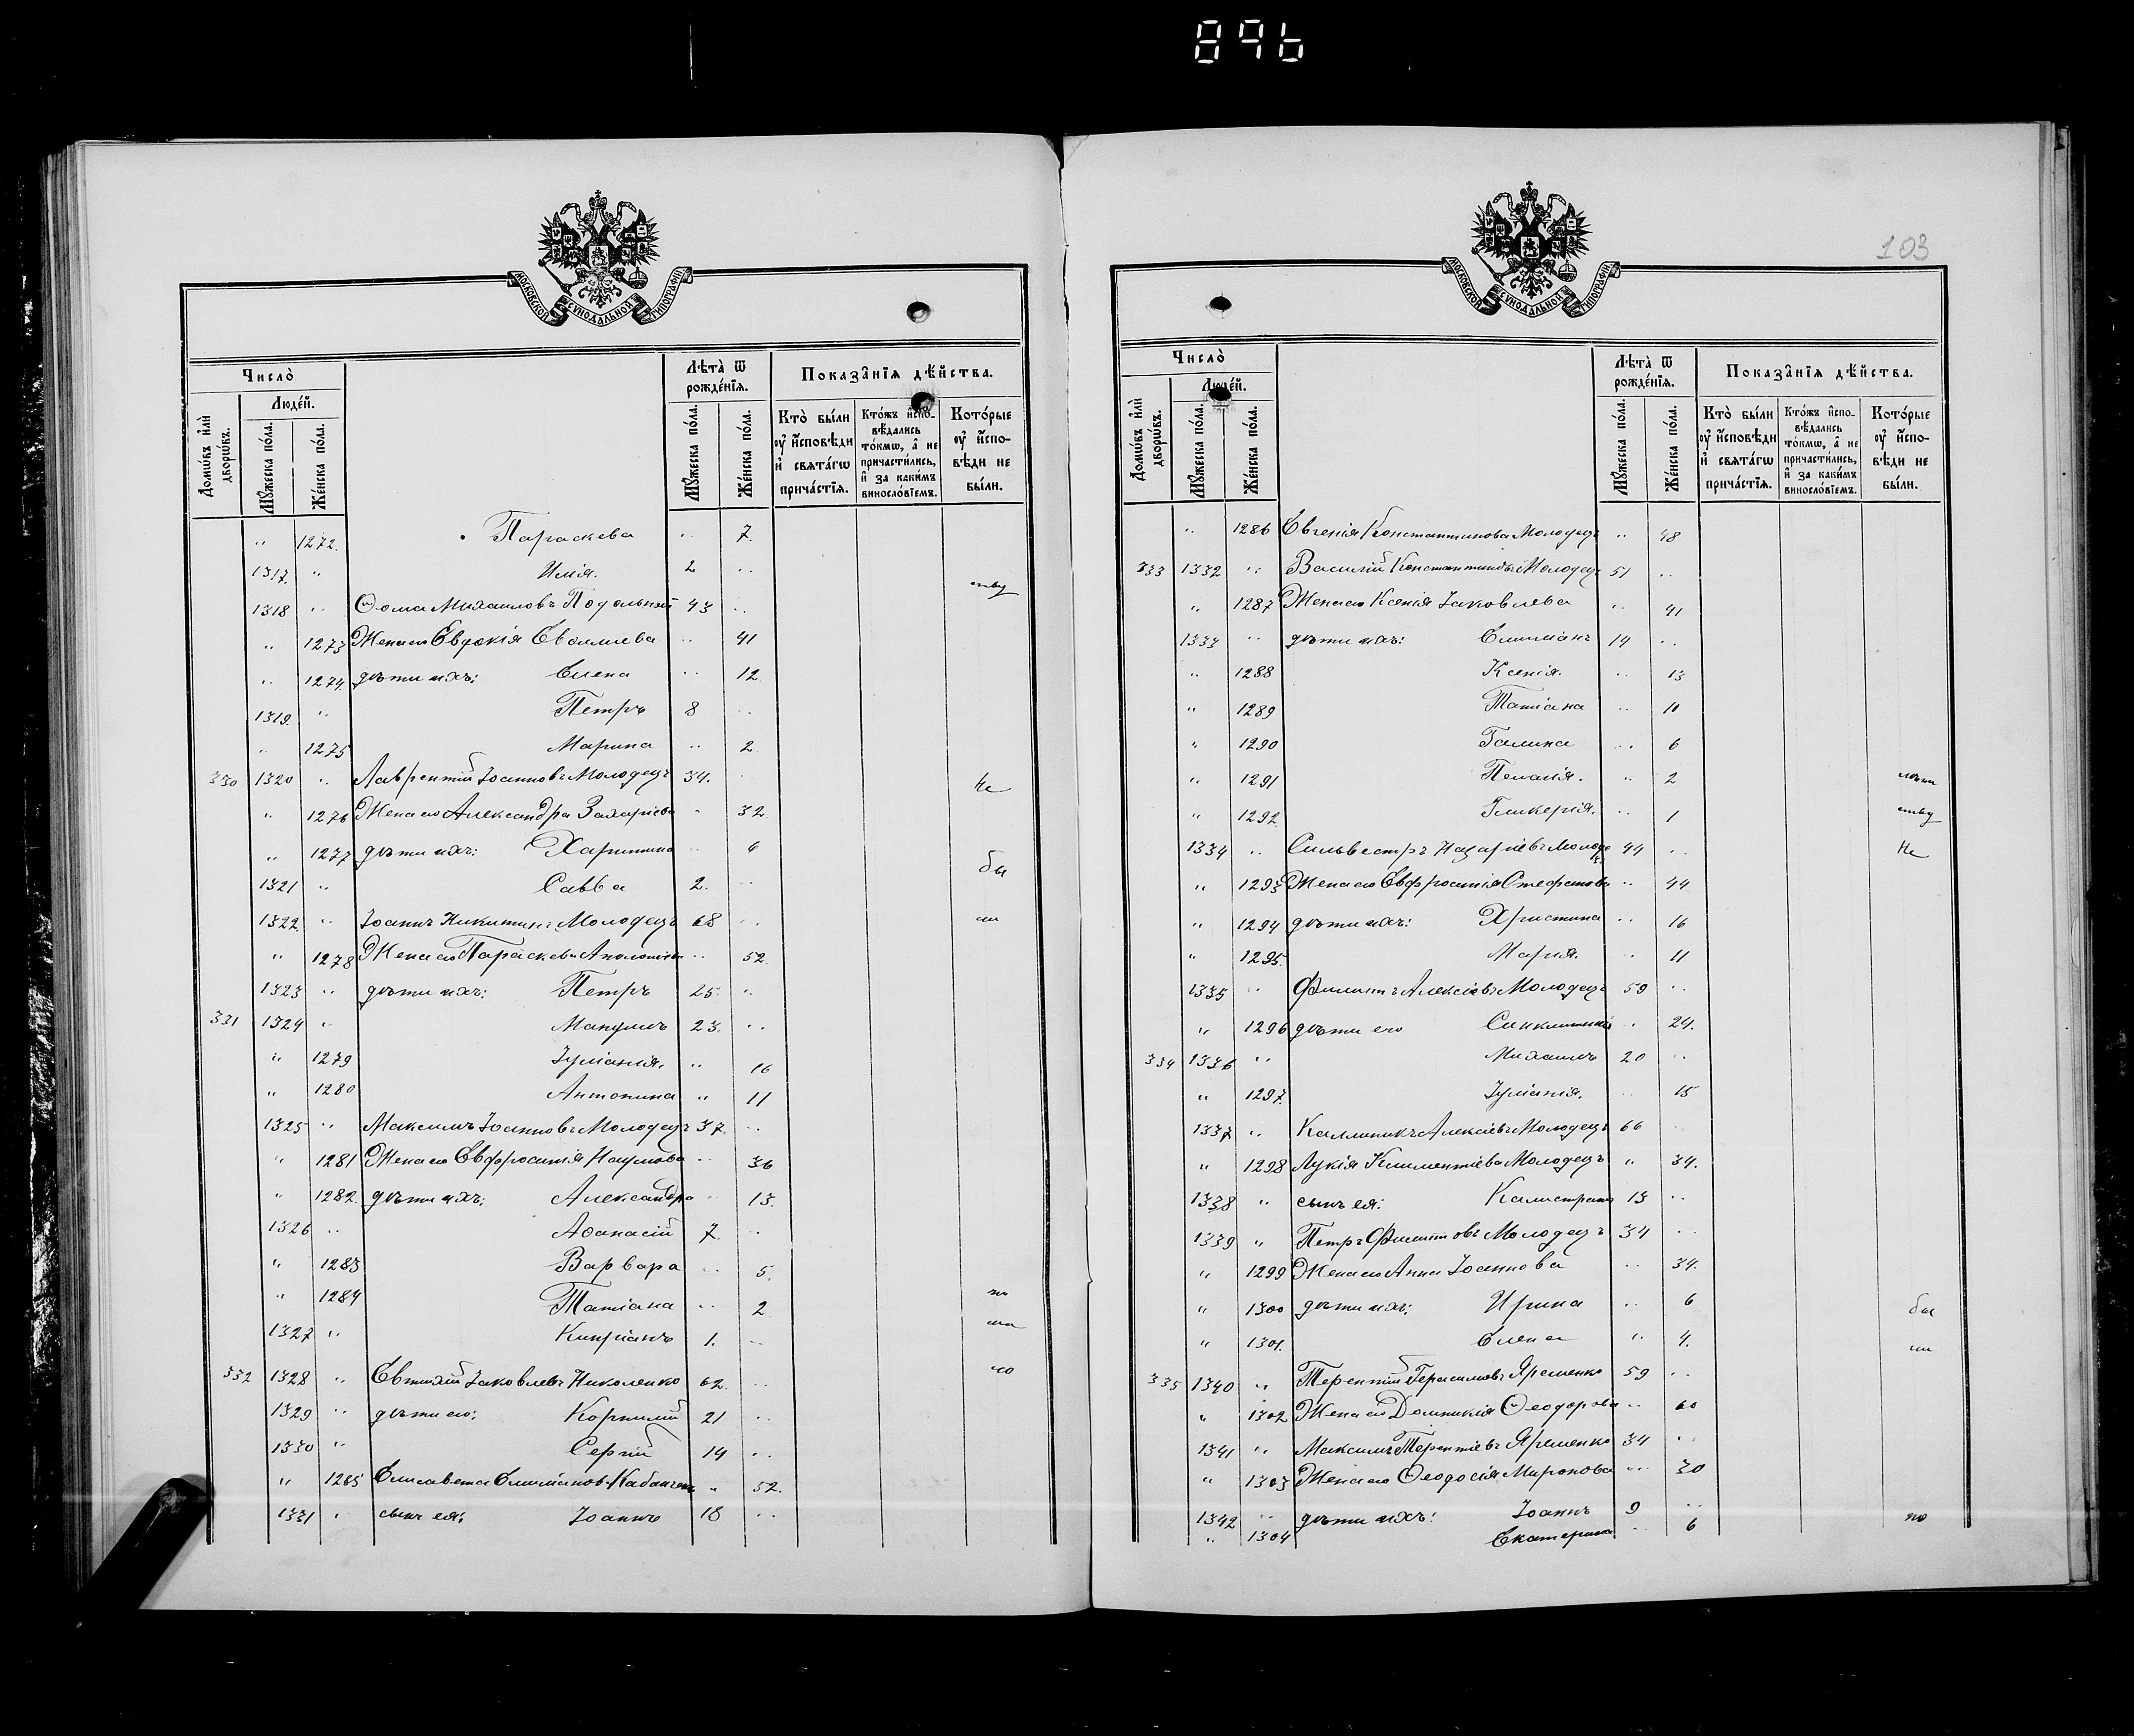 896
МОСКОВСКОЙ СУНОДАЛЬНОЙ ТИПОГРАФІИ
Число̀
Людéй.
Домѡ́въ и҆лѝ дворѡ́въ.
Мꙋ́жеска по́ла.
Же́нска по́ла.
Лѣта̀ ѿ рожде́нїѧ.
Мꙋ́жеска по́ла.
Же́нска по́ла.
Показа̑нїѧ дѣ́йства.
Кто̀ бы́ли ᲂу҆ и҆́сповѣди и҆ свѧта́гѡ прича́стїѧ.
Кто́жъ и҆спо-
вѣ́дались
то́кмѡ, а҆ не
причасти́лись,
и҆ за каки́мъ
винослові́емъ.
Кото́рые
ᲂу҆ и҆́спо-
вѣди не
бы́ли.
" 1272. Параскева " 7.
1317. " Илія. 2 "
ству
1318 " Ѳома Михаиловъ Подольный 43 "
" 1273 Жена его Евдокія " 41
" 1274. дѣти ихъ: Елена " 12.
1319. " Петръ 8 "
" 1275 Марина " 2.
330 1320 " Лаврентій Іоанновъ Молодецъ 34. "
Не
" 1276 Жена его Александра Захаріева " 32.
" 1277 дѣти ихъ: Харитина " 6
бы
1321 " Савва 2. "
1322 " Іоаннъ Никитинъ Молодецъ 68 "
ли
" 1278 Жена его Параскева " 52.
1323 " дѣти ихъ: Петръ 25. "
331 1324 " Мануилъ 23. "
" 1279 Іуліанія. " 16
" 1280 Антонина " 11
1325 " Максимъ Іоанновъ Молодецъ 37. "
" 1281 Жена его Евфросинія Наумова " 36
" 1282. дѣти ихъ: Александра " 13.
1326 " Аѳанасій 7. "
" 1283 Варвара " 5.
" 1284 Татіана " 2
1327 " Кипріанъ 1. "
332 1328 " Евтихій Іаковлевъ Николенко 62. "
1329 " дѣти его: Корнилій 21 "
1330 " Сергій 14 "
" 1285 Елисавета " 52.
1331 " сынъ ея: Іоаннъ 18 "
103
МОСКОВСКОЙ СУНОДАЛЬНОЙ ТИПОГРАФІИ
Число̀
Людéй.
Домѡ́въ и҆лѝ дворѡ́въ.
Мꙋ́жеска по́ла.
Же́нска по́ла.
Лѣта̀ ѿ рожде́нїѧ.
Мꙋ́жеска по́ла.
Же́нска по́ла.
Показа̑нїѧ дѣ́йства.
Кто̀ бы́ли ᲂу҆ и҆́сповѣди и҆ свѧта́гѡ прича́стїѧ.
Кто́жъ и҆спо-
вѣ́дались
то́кмѡ, а҆ не
причасти́лись,
и҆ за каки́мъ
винослові́емъ.
Кото́рые
ᲂу҆ и҆́спо-
вѣди не
бы́ли.
" 1286 Евгенія Константинова Молодецъ " 48
333 1332 " Василій Константиновъ Молодецъ 51 "
" 1287 Жена его Ксенія Іаковлева " 41
1333 " дѣти ихъ: Емиліанъ 14 "
" 1288 Ксенія. " 13
" 1289 Татіана " 10
" 1290 Галина " 6
" 1291 Пелагія. " 2
лѣт
" 1292 Гликерія. " 1
ству
1334 " Сильвестръ Назаріевъ Молодец 44 "
Не
" 1293 Жена его Евфросинія Стефанова " 44
" 1294 дѣти ихъ: Христина " 16
" 1295. Марія. " 11
1335 " Филиппъ Алексіевъ Молодецъ 59 "
" 1296 дѣти его Синклитикія " 24.
334 1336 " Михаилъ 20 "
" 1297. Іуліанія. " 15
1337 " Каллиникъ Алексіевъ Молодецъ 66 "
" 1298 Лукія Климентіева Молодецъ " 34.
1338 " сынъ ея: Калистратъ 13 "
1339 " Петръ Филипповъ Молодецъ 34 "
" 1299 Жена его Анна Іоаннова " 34.
" 1300 дѣти ихъ: Ирина " 6
бы
" 1301. Елена " 4.
ли
335 1340 " Терентій Герасимовъ Яременко 59 "
" 1302 Жена его Домникія Ѳеодорова " 60
1341 " Максимъ Терентіевъ Яременко 34 "
" 1303 Жена его Ѳеодосія Миронова " 30
1342 " дѣти ихъ: Іоаннъ 9 "
по
" 1304 Екатерина " 6